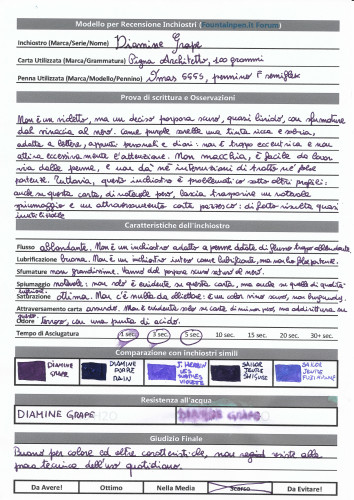 Modello per Recensione Inchiostri (Fountainpen.it Forum)
Inchiostro (Marca/Serie/Nome) Diamine Grape
Carta Utilizzata (Marca/Grammatura) Pigna Architetto, 100 grammi
Penna Utilizzata (Marca/Modello/Pennino) Omas 555S, pennino F semiflex
Prova di scrittura e Osservazioni
Non è un violetto, ma un deciso porpora scuro, quasi livido, con sfumature
dal vinaccia al nero. Come purple avelle una tinta ricca e sobria,
adatta a lettere, appunti personali e diari: non è troppo eccentrica e non
attira eccessivamente l'attenzione. Non macchia, è facile da lavar
via dalle penne, e non dà né interruzioni di tratto né false
partenze. Tuttavia, questo inchiostro è problematico sotto altri profili:
anche su questa carta, di notevole peso, lascia trasparire un notevole
spiumaggio e un attraversamento carta parecchio: di fatto risulta quasi
inutilizzabile
Caratteristiche dell'inchiostro
Flusso abbondante. Non è un inchiostro adatto a penne dotate di flusso troppo abbondante
Lubrificazione buona. Non è un inchiostro noto come lubrificante, ma non ha false partenze.
Sfumature non grandissime. Vanno dal porpora scuro verso al nero.
Spiumaggio notevole: non solo è evidente su questa carta, ma anche su quelle di qualità
migliori.
Saturazione ottima. Non c'è nulla da obiettare: è un color vino scuro, non burgundy.
Attraversamento carta assurdo. Non è evidente solo su carte di minor peso, ma addirittura su
questa.
Odore longevo, con una punta di acido.
Tempo di Asciugatura 1 sec. 3 sec. 5 sec. 10 sec. 15 sec. 20 sec. 30+ sec.
Comparazione con inchiostri simili
DIAMINE GRAPE
DIAMINE PURPLE RAIN
J. HERBIN LES SUBTILES VIOLETTE
SAILOR JENTLE SHIGURE
SAILOR JENTLE FUJIMUSUME
Resistenza all'acqua
DIAMINE GRAPE DIAMINE GRAPE
Giudizio Finale
Buono per colore ed altre caratteristiche, non regind esiste alla
prova tecnica dell'uso quotidiano.
Da Avere! Ottimo Nella Media Scarso Da Evitare!